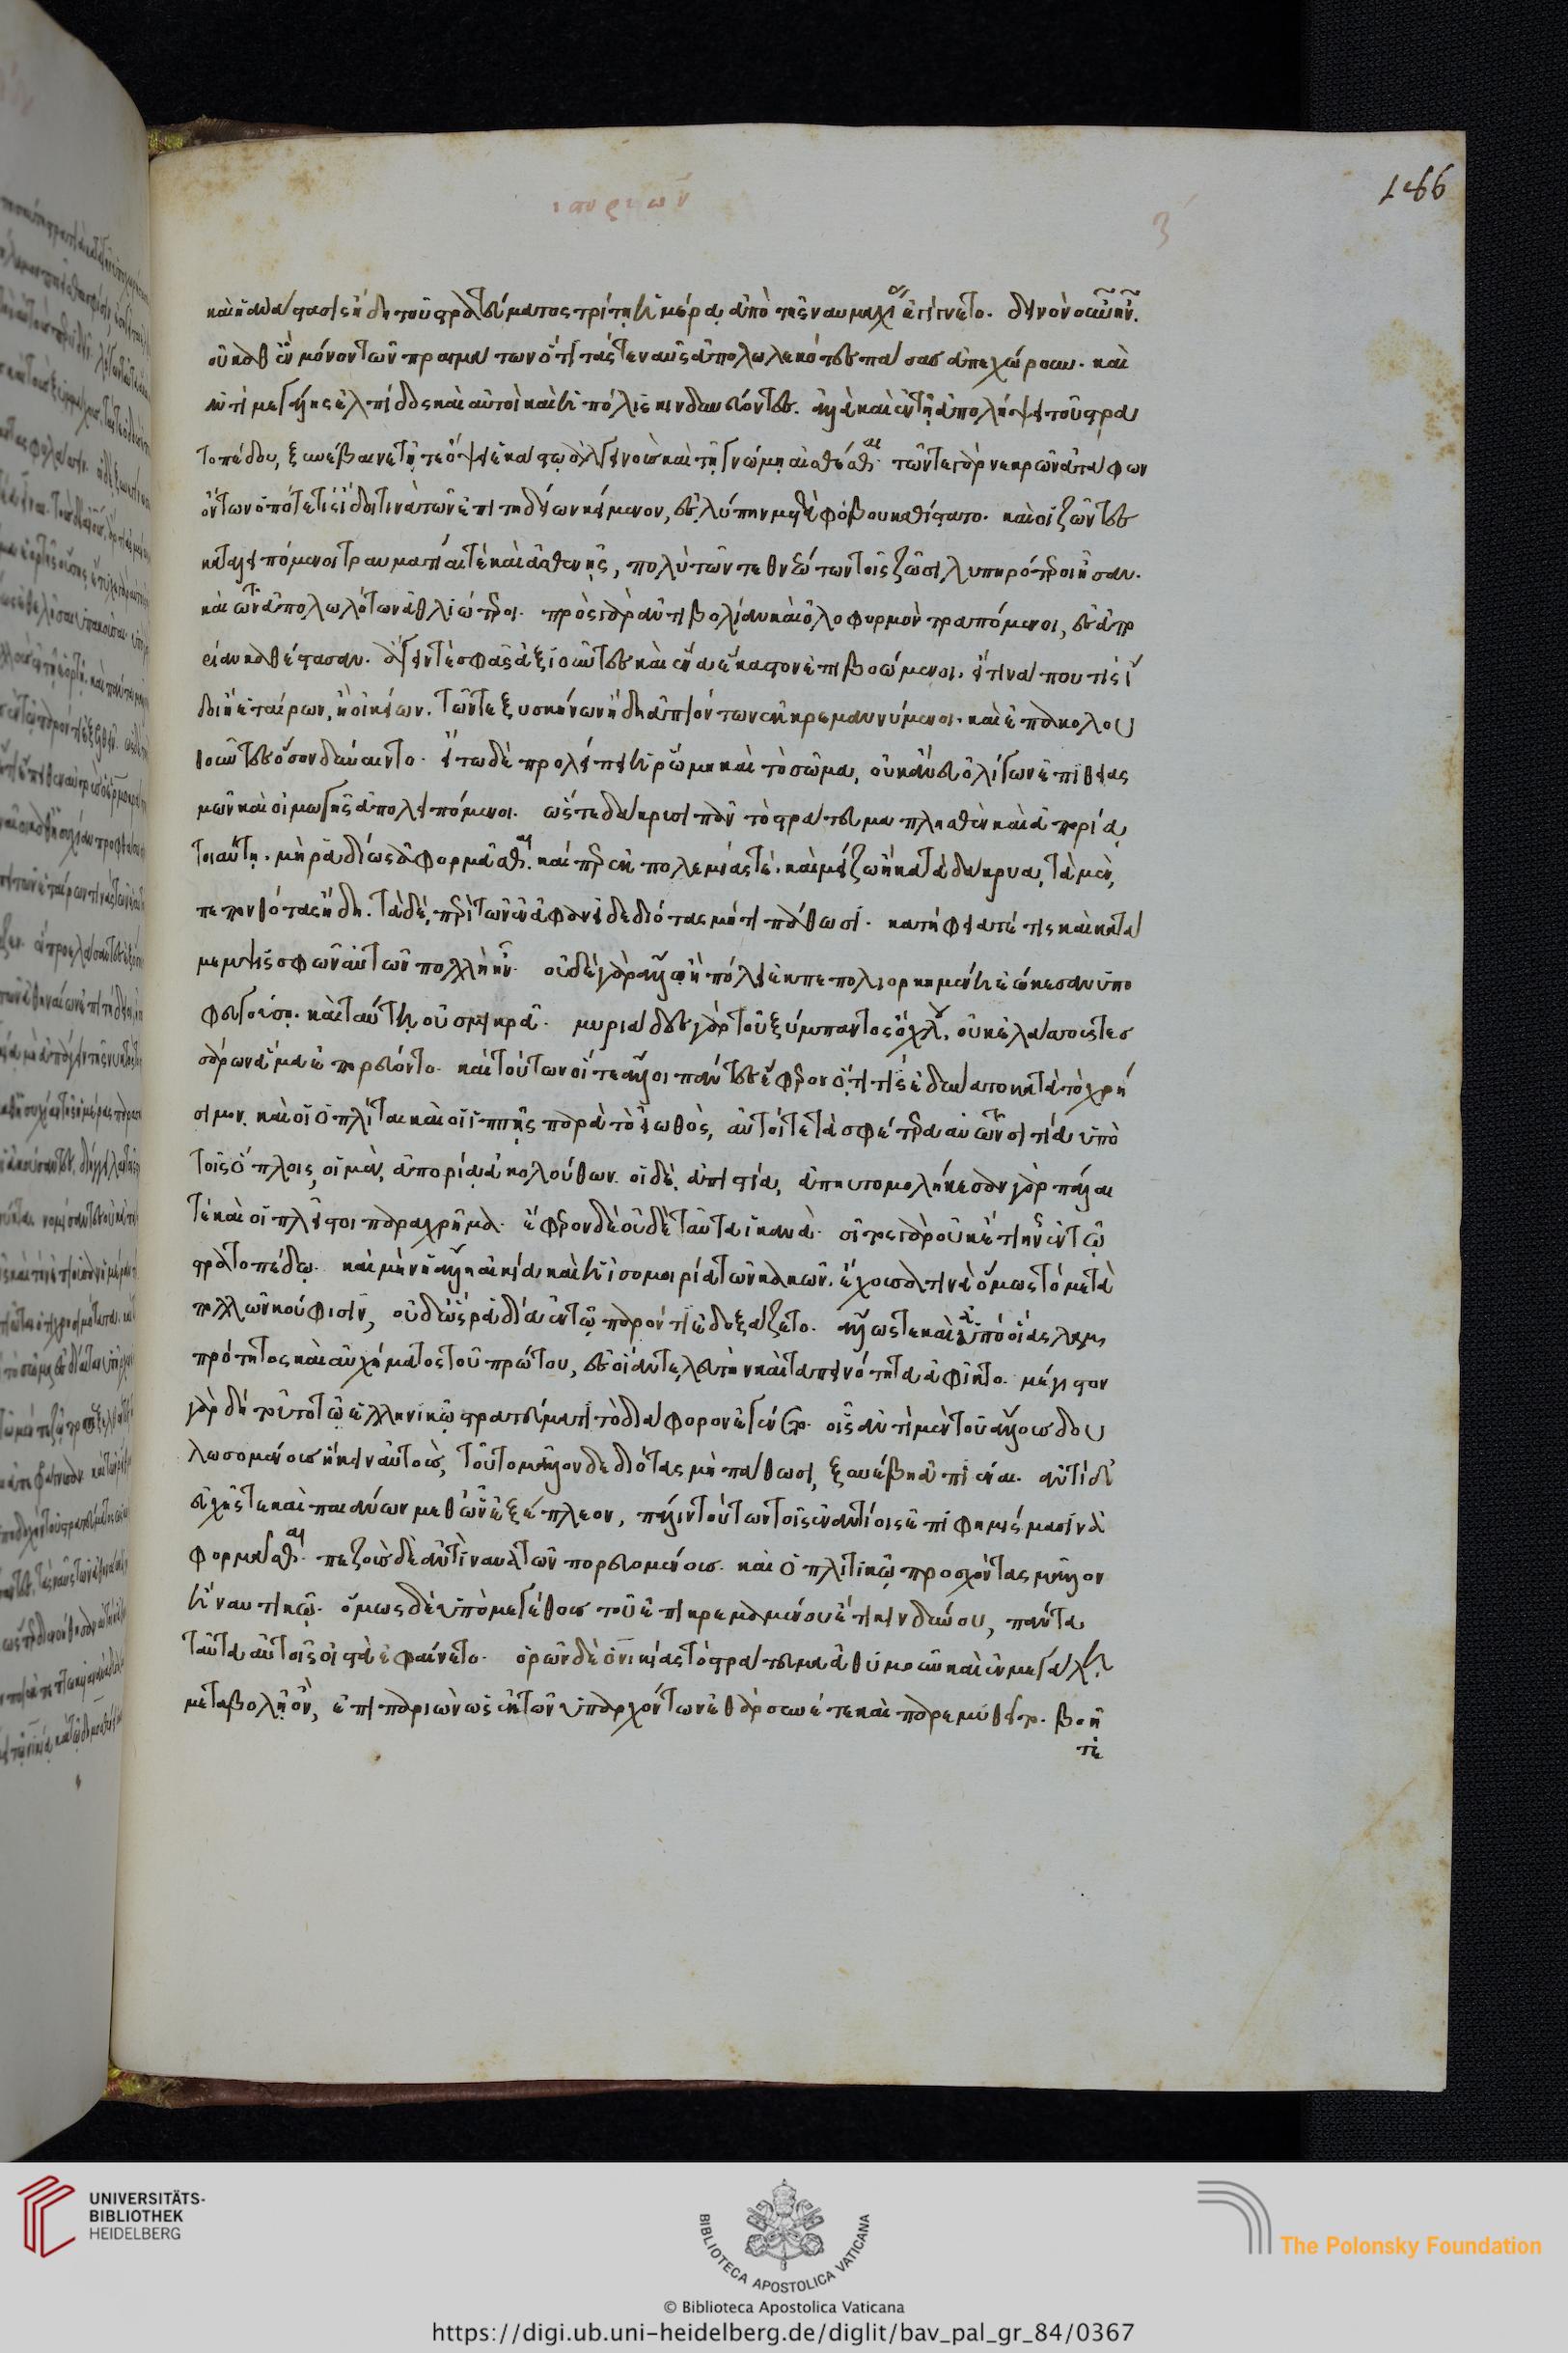 ἰσποριῶν
ζ´
166
καὶ ἡ ἀνάστασις ἤδη τοῦ στρατεύματος τρίτη ἡ μέρα ἀπὸ τῆς ναυμαχίας ἐγίγνετο. δεινὸν οὖν ἦν.
οὐ καθ ἓν μόνον τῶν πραγμάτων ὅτι τάς τε ναῦς ἀπολωλεκότες πάσας ἀπεχώρουν. καὶ
ἀντὶ μεγάλης ἐλπίδος καὶ αὐτοὶ καὶ ἡ πόλις κινδυνεύοντες. ἀλλὰ καὶ ἐν τῇ ἀπολήψει τοῦ στρα
τοπέδου, ξυνέβαινε τῇ τε ὄψει ἑκάστῳ ἀλγεινοῖς καὶ τῇ γνώμῃ αἰσθέσθαι. τῶν τε γὰρ νεκρῶν ἀτάφων
ὄντων ὁπότε τὶς ἴδοι τινὰ τῶν ἐπιτηδείων κείμενον, ἐς λύπην μετὰ φόβου καθίστατο. καὶ οἱ ζῶντες
καταλειπόμενοι τραυματίαι τὲ καὶ ἀσθενεῖς, πολὺ τῶν τεθνεώτων τοῖς ζῶσι λυπηρότεροι ἦσαν.
καὶ τῶν ἀπολωλότων ἀθλιώτεροι. πρὸς γὰρ ἀντιβολίαν καὶ ὀλοφυρμὸν τραπόμενοι, ἐς ἀπο
ρίαν καθέστασαν. ἄγειν τὲ σφᾶς ἀξιοῦντες καὶ ἕνα ἕκαστον ἐπιβοώμενοι, εἴ τινα που τὶς ἴ
δοι ἢ ἑταίρων, ἢ οἰκείων. τῶν τε ξυσκήνων ἤδη ἀπιόντων ἐκκρεμαννύμενοι. καὶ ἐπακολου
θοῦντες ὅσον δύναιντο. εἴ τω δὲ προλείπει ἡ ῥώμη καὶ τὸ σῶμα, οὐκ ἄνευ ὀλίγων ἐπιθειας
μῶν καὶ οἰμωγῆς ἀπολειπόμενοι. ὥστε δάκρυσι πᾶν τὸ στράτευμα πλησθὲν καὶ ἀπορίᾳ
τοιαύτῃ. μὴ ῥᾳδίως ἀφορμᾶσθαι. καί περ ἐκ πολεμίας τέ. καὶ μείζω ἢ κατὰ δάκρυα, τὰ μὲν,
πεπονθότας ἤδη. τὰ δὲ, περὶ τῶν ἐν ἀφανεῖ δεδιότας μή τι πάθωσι. κατήφειά τέ τις καὶ κατά
μεμψις σφῶν αὐτῶν πολλὴ ἦν. οὐδὲν γὰρ ἄλλο ἢ πόλει ἐκπεπολιορκημένῃ ἐῴκεσαν ὑπο
φευγούσῃ. καὶ ταύτῃ οὐ σμικρᾷ. μυριάδες γὰρ τοῦ ξύμπαντος ὄχλου, οὐκ ἐλάσσους τεσ
σάρων ἅμα ἐπορεύοντο. καὶ τούτων οἵ τε ἄλλοι πάντες ἔφερον ὅ,τι τίς ἐδύνατο κατὰ τὸ χρή
σιμον. καὶ οἱ ὁπλῖται καὶ οἱ ἱππῆς παρὰ τὸ εἰωθὸς, αὐτοί τε τὰ σφέτερα αὐτῶν σιτία ὑπὸ
τοῖς ὅπλοις, οἱ μὲν, ἀπορίᾳ ἀκολούθων. οἱ δὲ, ἀπιστίᾳ, ἀπηυτομολήκεσαν γὰρ πάλαι
τὲ καὶ οἱ πλεῖστοι παραχρῆμα. ἔφερον δὲ οὐδὲ ταῦτα ἱκανά. σῖτος γὰρ οὐκέτι ἦν ἐν τῷ
στρατοπέδῳ. καὶ μὴν ἡ ἄλλη αἰκία καὶ ἡ ἰσομοιρία τῶν κακῶν. ἔχουσα τινὰ ὅμως τὸ μετὰ
πολλῶν κούφισιν, οὐδ' ὣς ῥᾳδία ἐν τῷ παρόντι ἐδοξάζετο. ἄλλως τε καὶ ἀπὸ οἵας λαμ
πρότητος καὶ αὐχήματος τοῦ πρώτου, ἐς οἵαν τελευτὴν καὶ ταπεινότητα ἀφῖκτο. μέγιστον
γὰρ δὴ τοῦτο τῷ ἑλληνικῷ στρατεύματι τὸ διάφορον ἐγένετο. οἷς ἀντὶ μὲν τοῦ ἄλλους δου
λωσομένους ἥκειν αὐτοὺς, τοῦτο μᾶλλον δεδιότας μὴ πάθωσι, ξυνέβη ἀπιέναι. ἀντὶ δ'
εὐχῆς τε καὶ παιάνων μεθ' ὧν ἐξέπλεον, πάλιν τούτων τοῖς ἐναντίοις ἐπιφημίσμασιν ἀ
φορμᾶσθαι. πεζοὺς δὲ ἀντὶ ναυατῶν πορευομένους. καὶ ὁπλιτικῷ προσχόντας μᾶλλον
ἢ ναυτικῷ. ὅμως δὲ ὑπὸ μεγέθους τοῦ ἐπικρεμαμένου ἔτι κινδύνου, πάντα
ταῦτα αὐτοῖς οἰστὰ ἐφαίνετο. ὁρῶν δὲ ὁ νικίας τὸ στράτευμα ἀθυμοῦν καὶ ἐν μεγάλῃ
μεταβολῇ ὂν, ἐπιπαριὼν ὡς ἐκ τῶν ὑπαρχόντων ἐθάρσυνέ τε καὶ παρεμυθεῖτο. βοῇ
τὲ
UNIVERSITÄTS-
BIBLIOTHEK
HEIDELBERG
BIBLIOTECA APOSTOLICA VATICANA
The Polonsky Foundation
© Biblioteca Apostolica Vaticana
https://digi.ub.uni-heidelberg.de/diglit/bav_pal_gr_84/0367